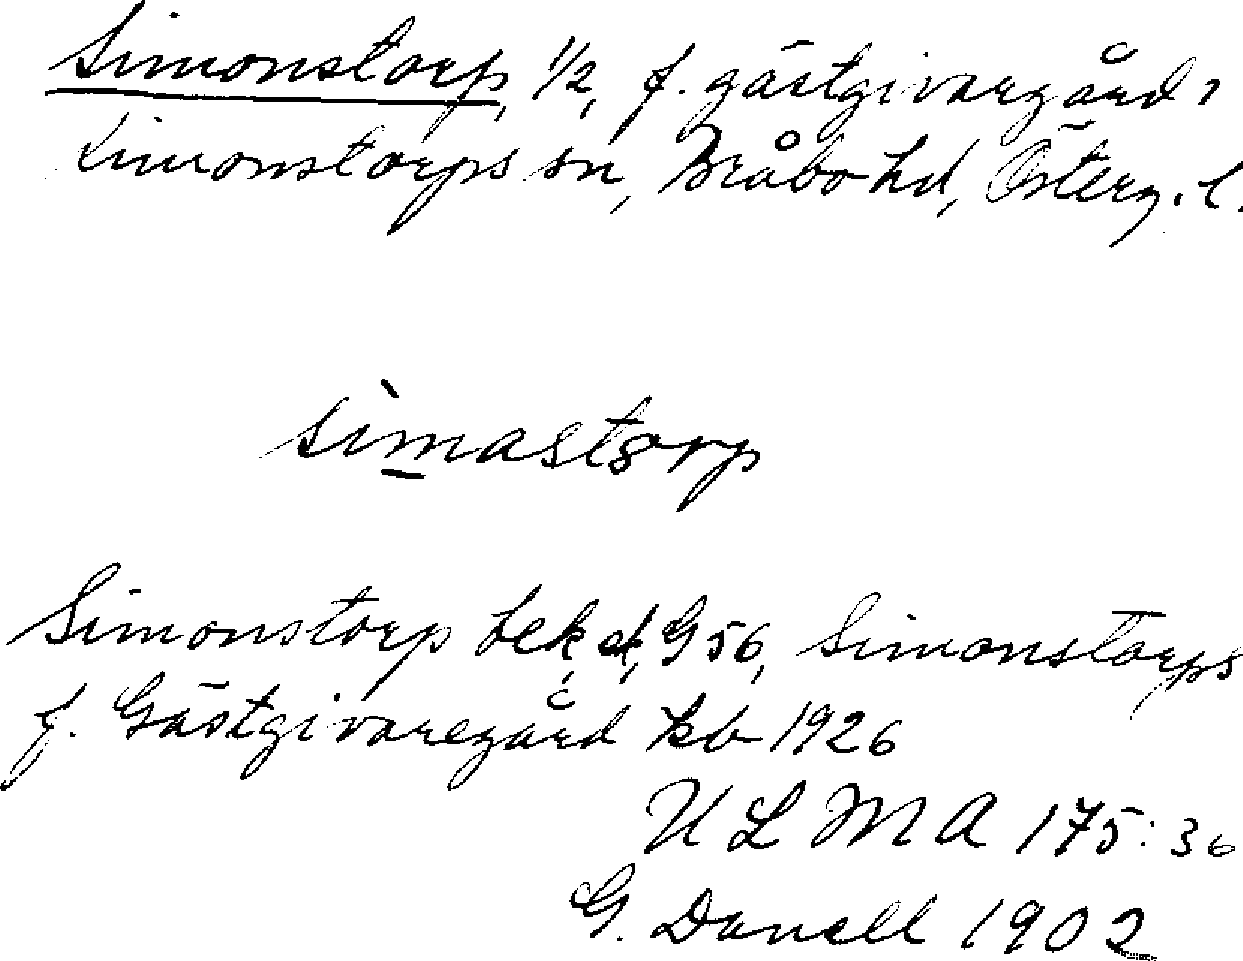 Simonstorp, 1/2, f. gästgivaregård,
Simonstorps sn, Bråbo hd, Österg. l.
sìmastorp
Simonstorp bek, ek, G 56, Simonstorps
f. Gästgivaregård kb 1926
ULMA 175:36
G. Danell 1902